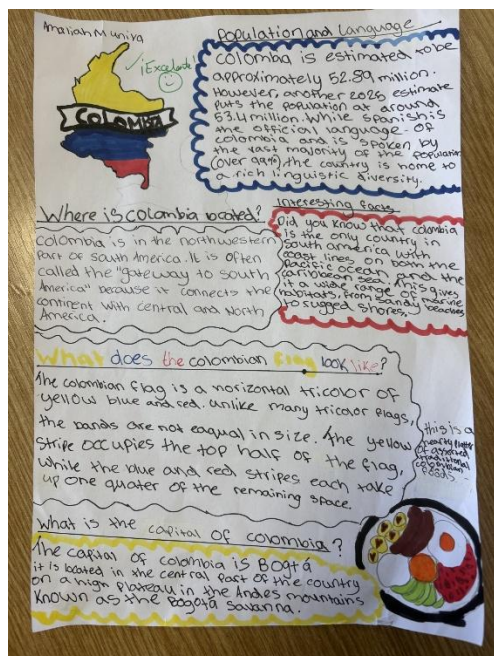 Amaliah Muniva
¡Excelente!
COLOMBIA
Population and Language
Colomba is estimated to be
approximately 52.89 million.
However, another 2025 estimate
puts the population at around
53.4 million. While spanish is
the official language of
colombia and is spoken by
the vast majority of the population
(over 99%), the country is home to
a rich linguistic diversity.
Where is colombia located?
Colombia is in the northwestern
part of south America. It is often
called the "gateway to south
America" because it connects the
continent with central and North
America.
Interesting facts
Did you know that colombia
is the only country in
south america with
coast lines on both the
pacific ocean and the
caribbean sea. This gives
it a wide range of marine
habitats, from sandy beaches
to rugged shores.
What does the colombian flag look like?
The colombian flag is a horizontal tricolor of
yellow blue and red. unlike many tricolor flags,
the bands are not eaqual in size. The yellow
stripe occupies the top half of the flag,
while the blue and red stripes each take
up one quater of the remaining space.
this is a
hearty platter
of assorted
traditional
colombian
foods
What is the capital of colombia?
The capital of colombia is Bogtá
it is located in the central part of the country
on a high plateau in the Andes mountains
known as the Bogotá savanna.